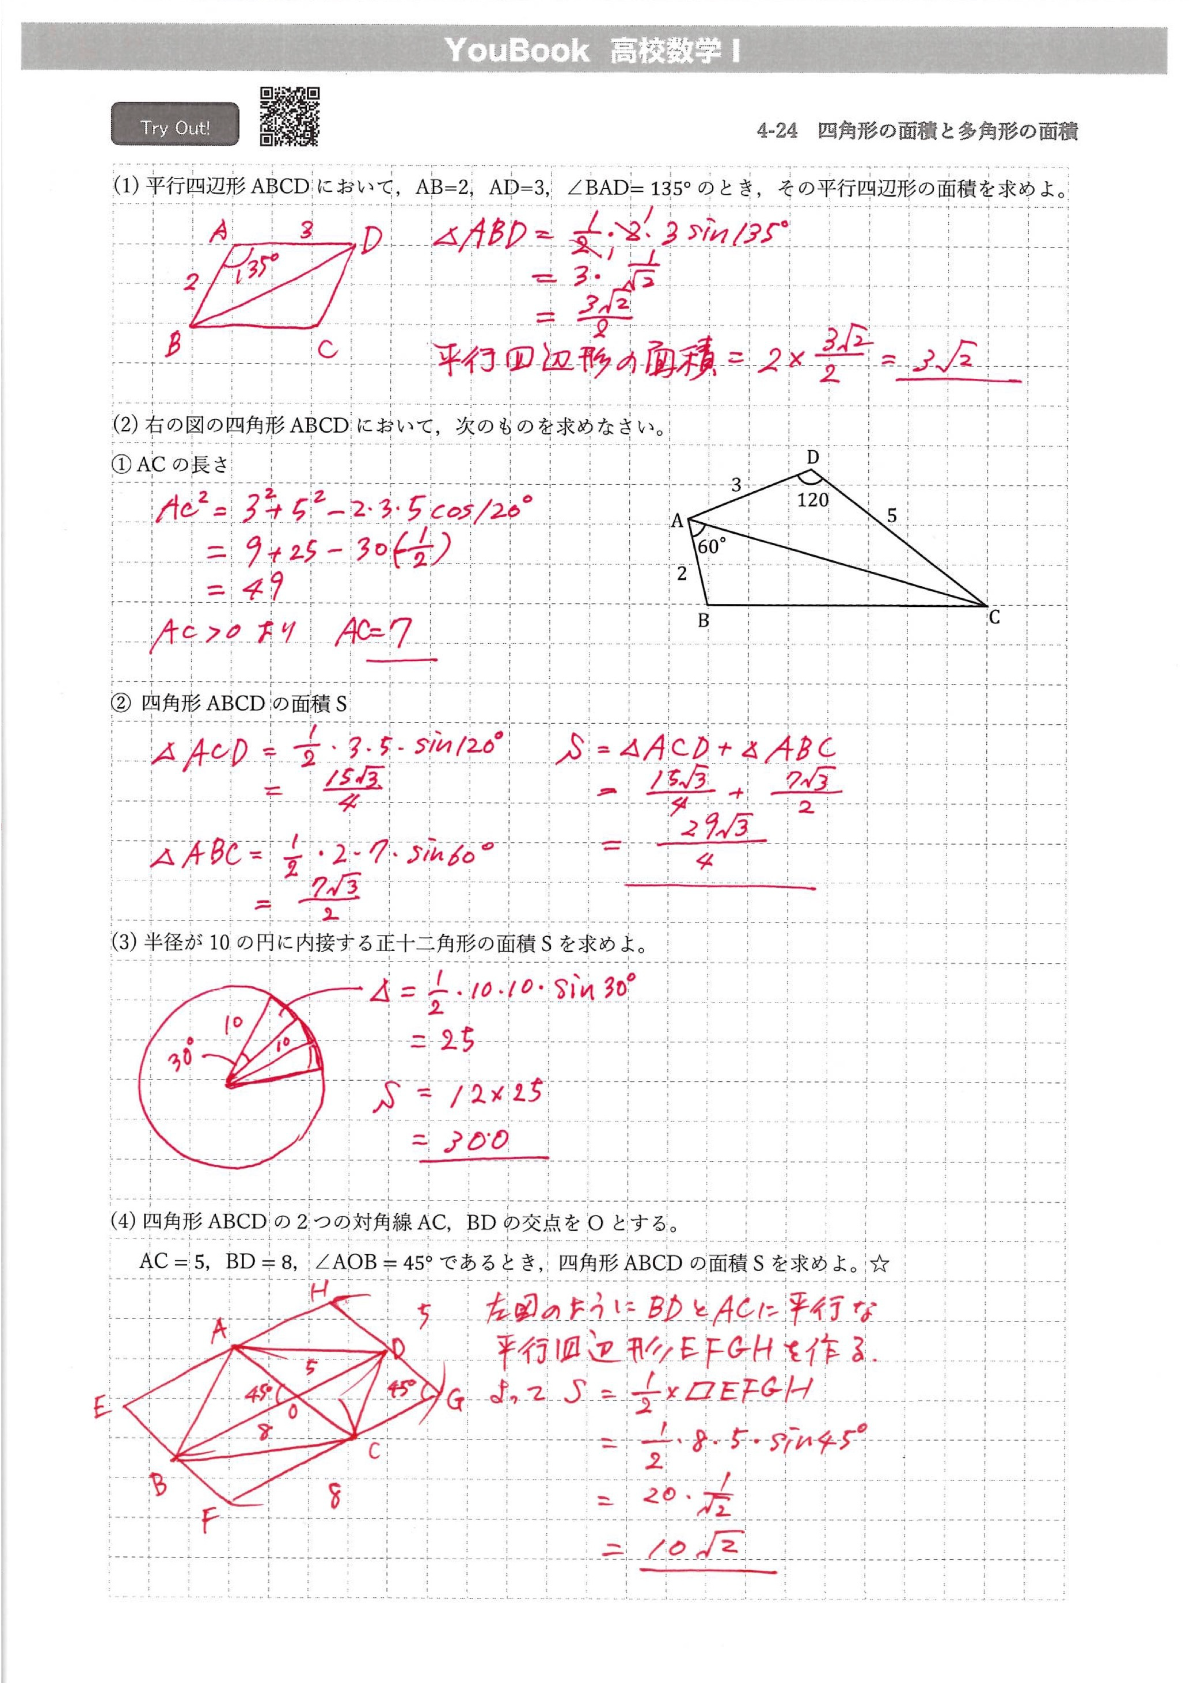 YouBook 高校数学 I
Try Out!
4-24 四角形の面積と多角形の面積
(1) 平行四辺形 ABCD において，AB=2，AD=3，∠BAD= 135° のとき，その平行四辺形の面積を求めよ。
A 3 D
2 135°
B C
△ABD = 1/2 · 2 · 3 sin135°
1 1
= 3 · 1/√2
= 3√2/2
平行四辺形の面積 = 2 × 3√2/2 = 3√2
(2) 右の図の四角形 ABCD において，次のものを求めなさい。
① AC の長さ
AC² = 3² + 5² − 2·3·5 cos120°
= 9 + 25 − 30(−1/2)
= 49
AC > 0 より AC = 7
D
3
120
A
5
60°
2
B
C
② 四角形 ABCD の面積 S
△ACD = 1/2 · 3 · 5 · sin120°
= 15√3/4
△ABC = 1/2 · 2 · 7 · sin60°
= 7√3/2
S = △ACD + △ABC
= 15√3/4 + 7√3/2
= 29√3/4
(3) 半径が 10 の円に内接する正十二角形の面積 S を求めよ。
10
30°
10
△ = 1/2 · 10 · 10 · sin30°
= 25
S = 12 × 25
= 300
(4) 四角形 ABCD の 2 つの対角線 AC，BD の交点を O とする。
AC = 5，BD = 8，∠AOB = 45° であるとき，四角形 ABCD の面積 S を求めよ。☆
H
5
A
D
5
45°
45°
E
O
G
8
C
B
8
F
左図のように BD と AC に平行な
平行四辺形 EFGH を作る.
よって S = 1/2 × □EFGH
= 1/2 · 8 · 5 · sin45°
= 20 · 1/√2
= 10√2